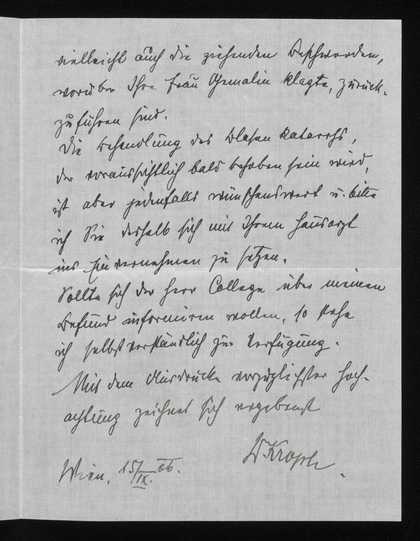 vielleicht auch die ziehenden Beschwerden,
worüber Ihre Frau Gemalin klagte, zurück-
zuführen sind.
Die Behandlung des Blasenkatarrhs,
der voraussichtlich bald behoben sein wird,
ist aber jedenfalls wünschenswert u. bitte
ich Sie deshalb sich mit Ihrem Hausarzt
ins Einvernehmen zu setzen.
Sollte sich der Herr College über meinen
Befund informiren wollen, so stehe
ich selbstverständlich zur Verfügung.
Mit dem Ausdrucke vorzüglichster Hoch-
achtung zeichnet sich ergebenst
Wien, 15/IX. 06.